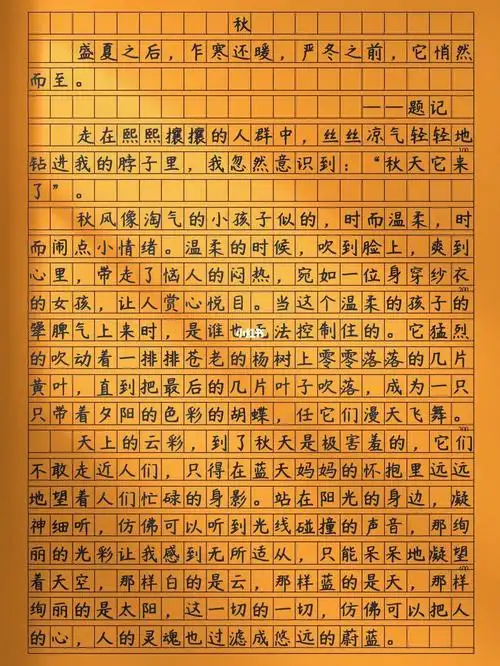 秋
盛夏之后，乍寒还暖，严冬之前，它悄然
而至。
——题记
走在熙熙攘攘的人群中，丝丝凉气轻轻地
钻进我的脖子里，我忽然意识到：“秋天它来
了”。
秋风像淘气的小孩子似的，时而温柔，时
而闹点小情绪。温柔的时候，吹到脸上，爽到
心里，带走了恼人的闷热，宛如一位身穿纱衣
的女孩，让人赏心悦目。当这个温柔的孩子的
犟脾气上来时，是谁也法控制住的。它猛烈
的吹动着一排排苍老的杨树上零零落落的几片
黄叶，直到把最后的几片叶子吹落，成为一只
只带着夕阳的色彩的胡蝶，任它们漫天飞舞。
天上的云彩，到了秋天是极害羞的，它们
不敢走近人们，只得在蓝天妈妈的怀抱里远远
地望着人们忙碌的身影。站在阳光的身边，凝
神细听，仿佛可以听到光线碰撞的声音，那绚
丽的光彩让我感到无所适从，只能呆呆地凝望
着天空，那样白的是云，那样蓝的是天，那样
绚丽的是太阳，这一切的一切，仿佛可以把人
的心，人的灵魂也过滤成悠远的蔚蓝。